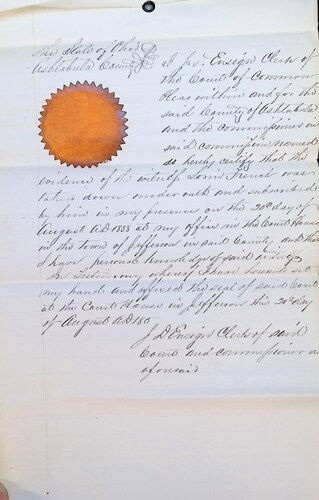 The State of Ohio
Ashtabula County
I J D Ensign Clerk of
The Court of Common
Pleas within and for the
said County of Ashtabula
and the commissioner in
said commission named
do hereby certify that the
evidence of the witness French was
taken down under oath and subscribed
by him in my presence on the 20th day of
August AD 1855 at my office in the Court House
in the town of Jefferson in said County and that
I have personal knowledge of said
In Testimony whereof I have hereunto set
my hand and affixed the seal of said Court
at the Court House in Jefferson this 20th day
of August AD 185
J D Ensign Clerk of said
Court and commissioner as
aforesaid